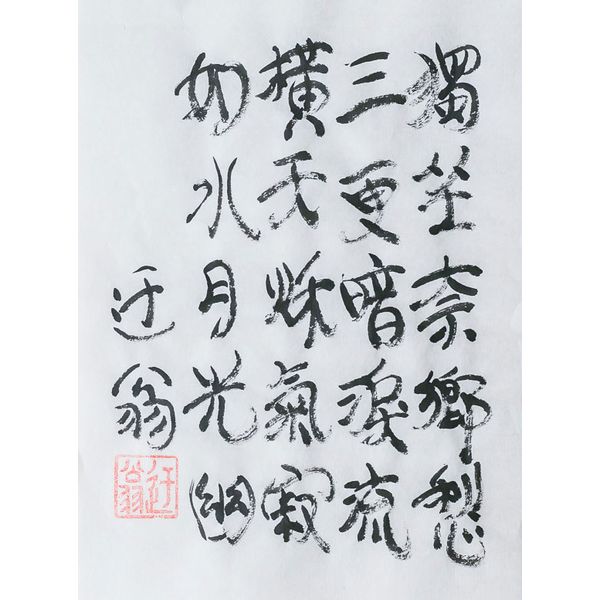 獨坐奈鄉愁
三更暗淚流
橫天秋氣寂
如水月光幽
迂翁
迂翁